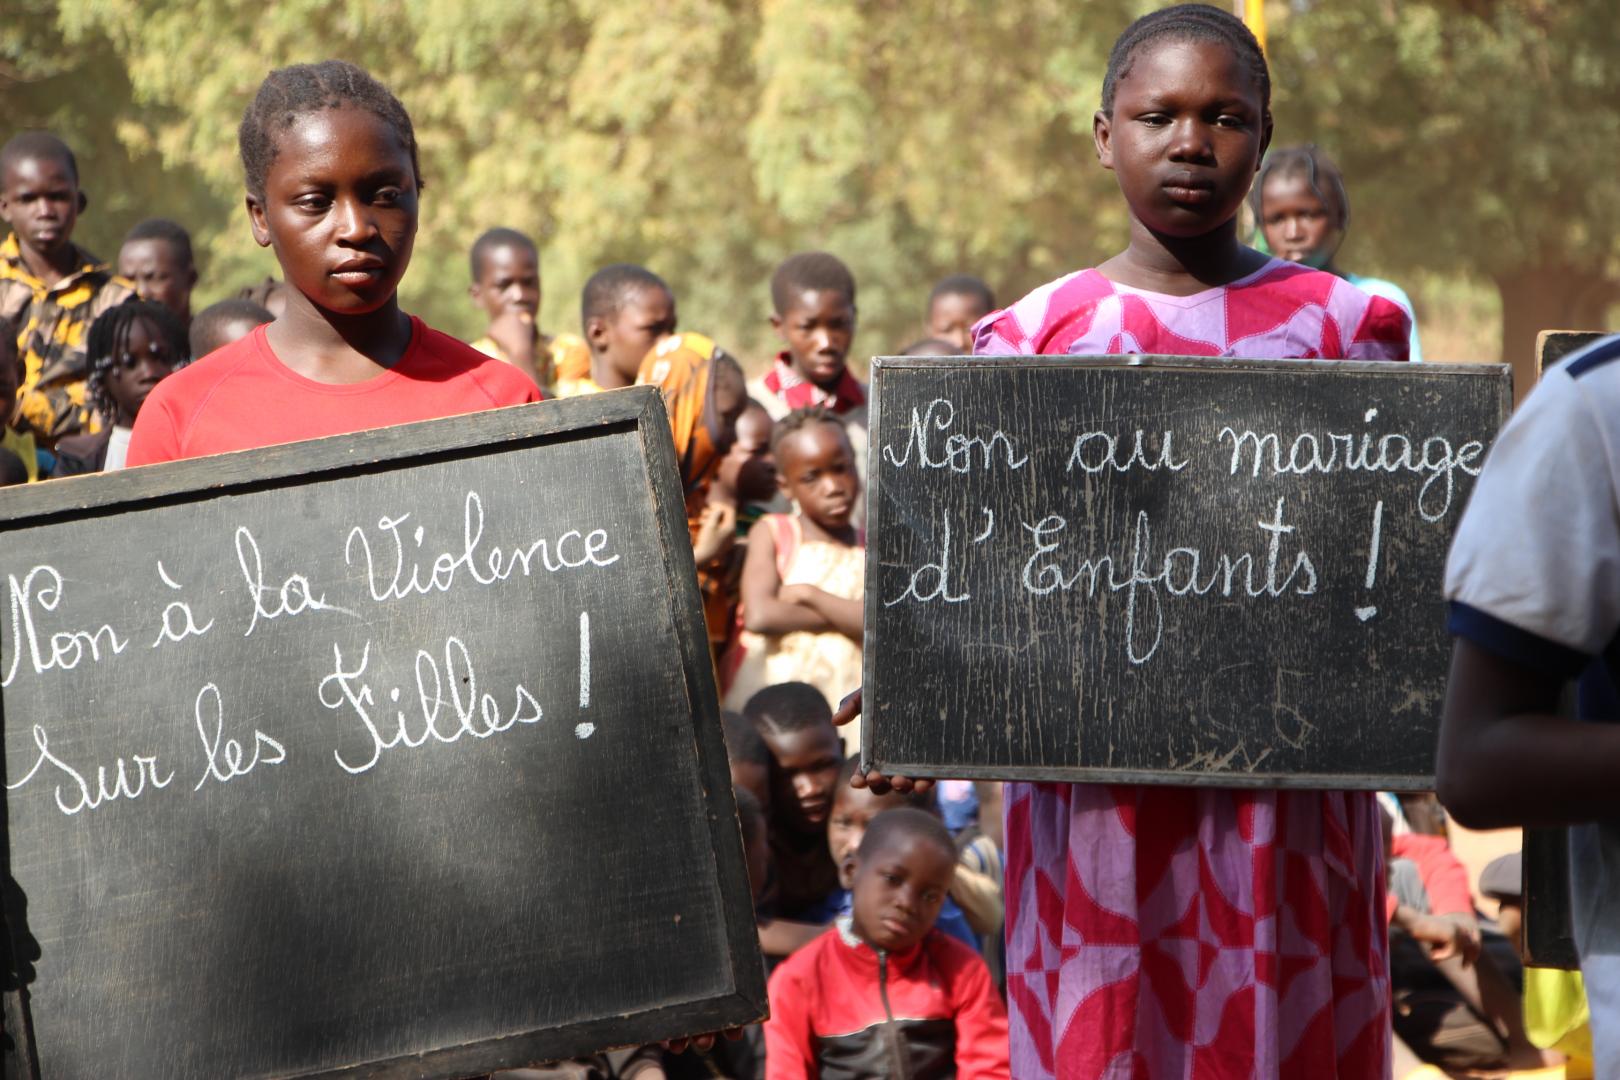 Non à la Violence
Sur les Filles !
Non au mariage
d'Enfants !